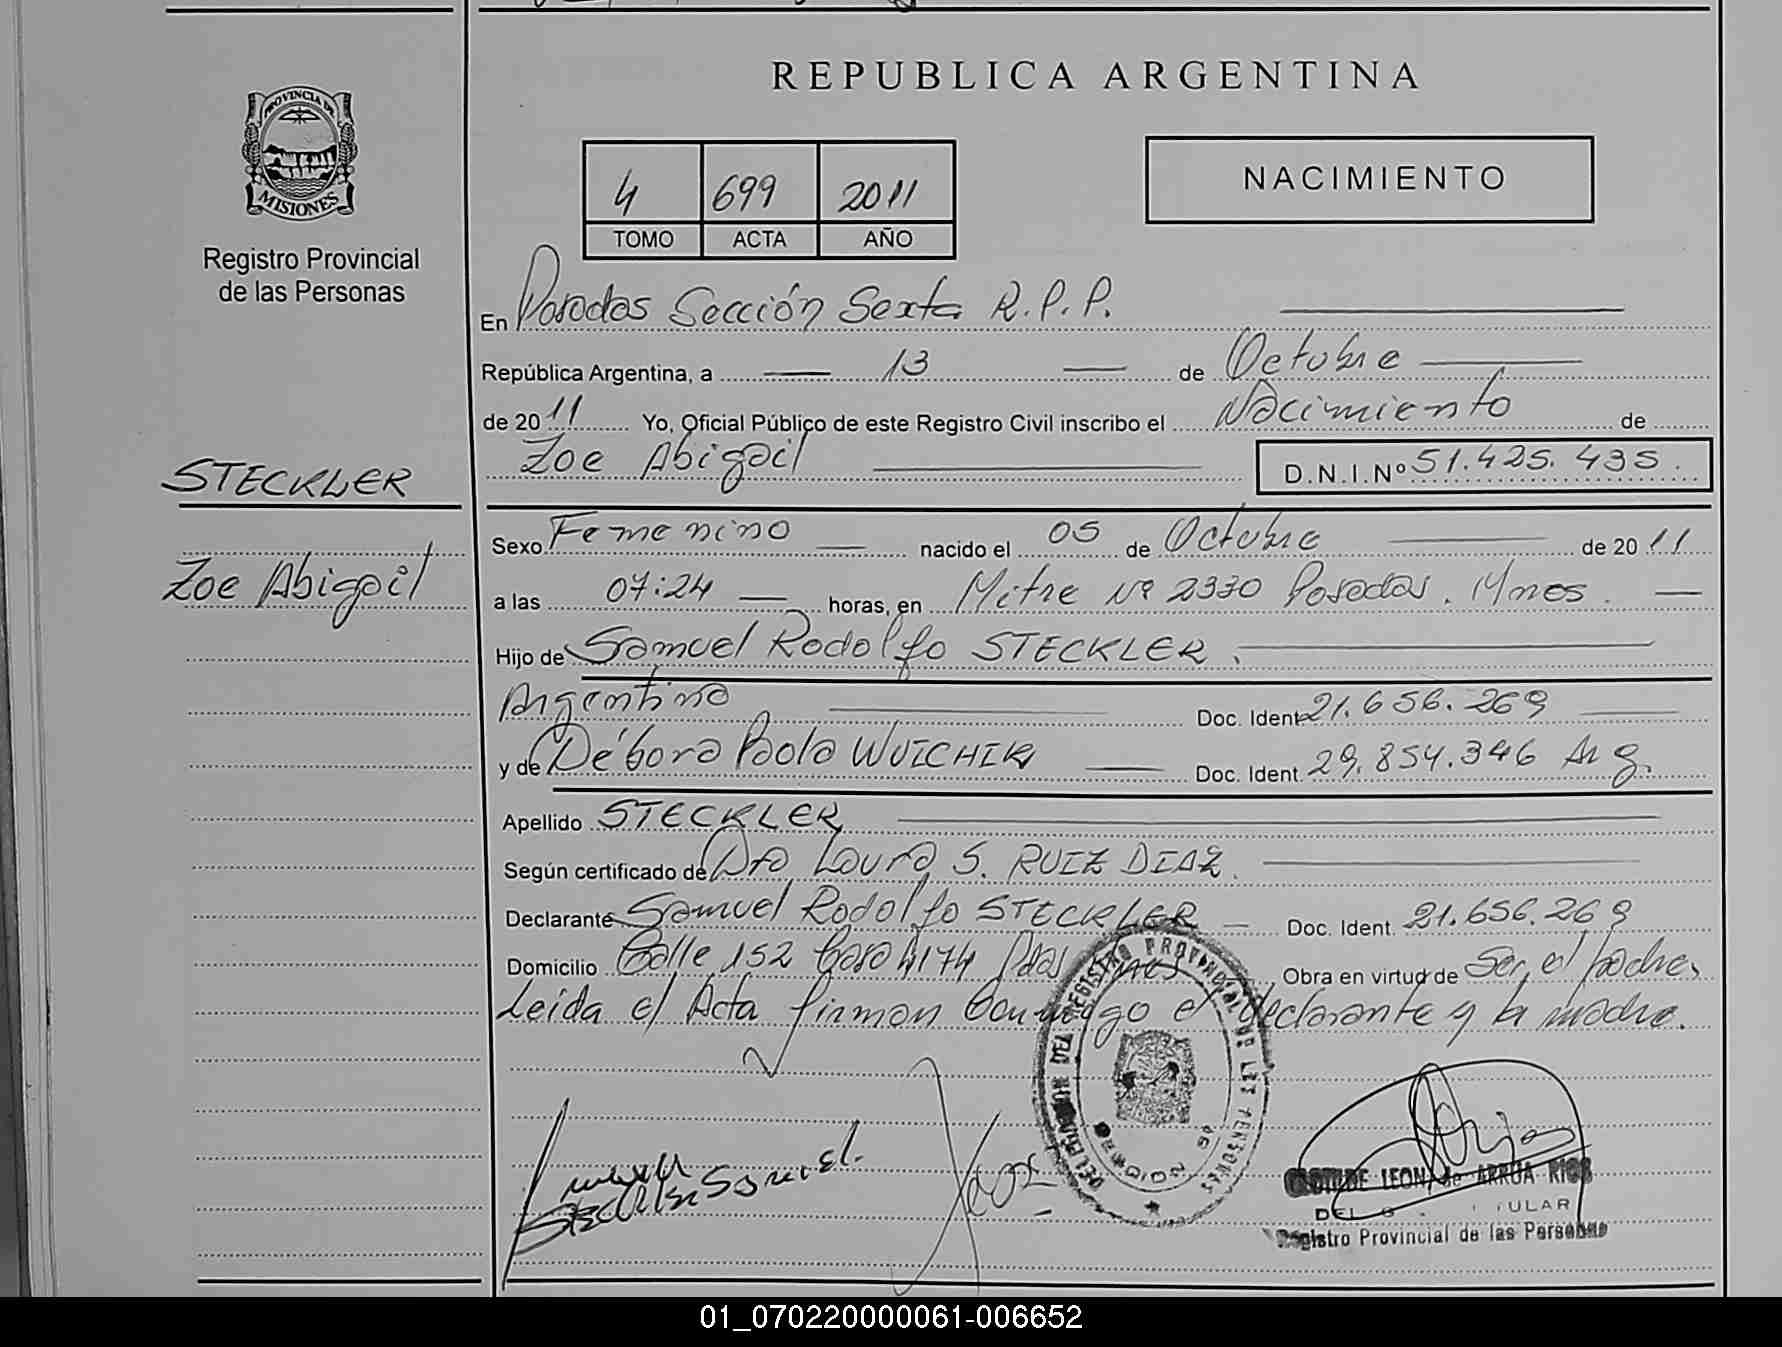 REPUBLICA ARGENTINA
PROVINCIA DE
MISIONES
Registro Provincial
de las Personas
4 699 2011
TOMO ACTA AÑO
NACIMIENTO
En Posadas Sección Sexta R.P.P.
República Argentina, a 13 de Octubre
de 2011 Yo, Oficial Público de este Registro Civil inscribo el Nacimiento de
Zoe Abigail D.N.I.Nº 51.425.435.
STECKLER
Sexo Femenino nacido el 05 de Octubre de 2011
Zoe Abigail
a las 07:24 horas, en Mitre Nº 2330 Posadas. Mnes.
Hijo de Samuel Rodolfo STECKLER.
Argentino Doc. Ident. 21.656.269
y de Débora Paola WUICHIK Doc. Ident. 29.854.346 Arg.
Apellido STECKLER
Según certificado de Dra Laura S. RUIZ DIAZ.
Declarante Samuel Rodolfo STECKLER Doc. Ident. 21.656.269
Domicilio Calle 152 Casa 4174 Pdas Mnes Obra en virtud de Ser el padre.
Leida el Acta firman Conmigo el declarante y la madre.
Steckler Samuel.
LEON de ARRUA RIOS
Registro Provincial de las Personas
01_070220000061-006652